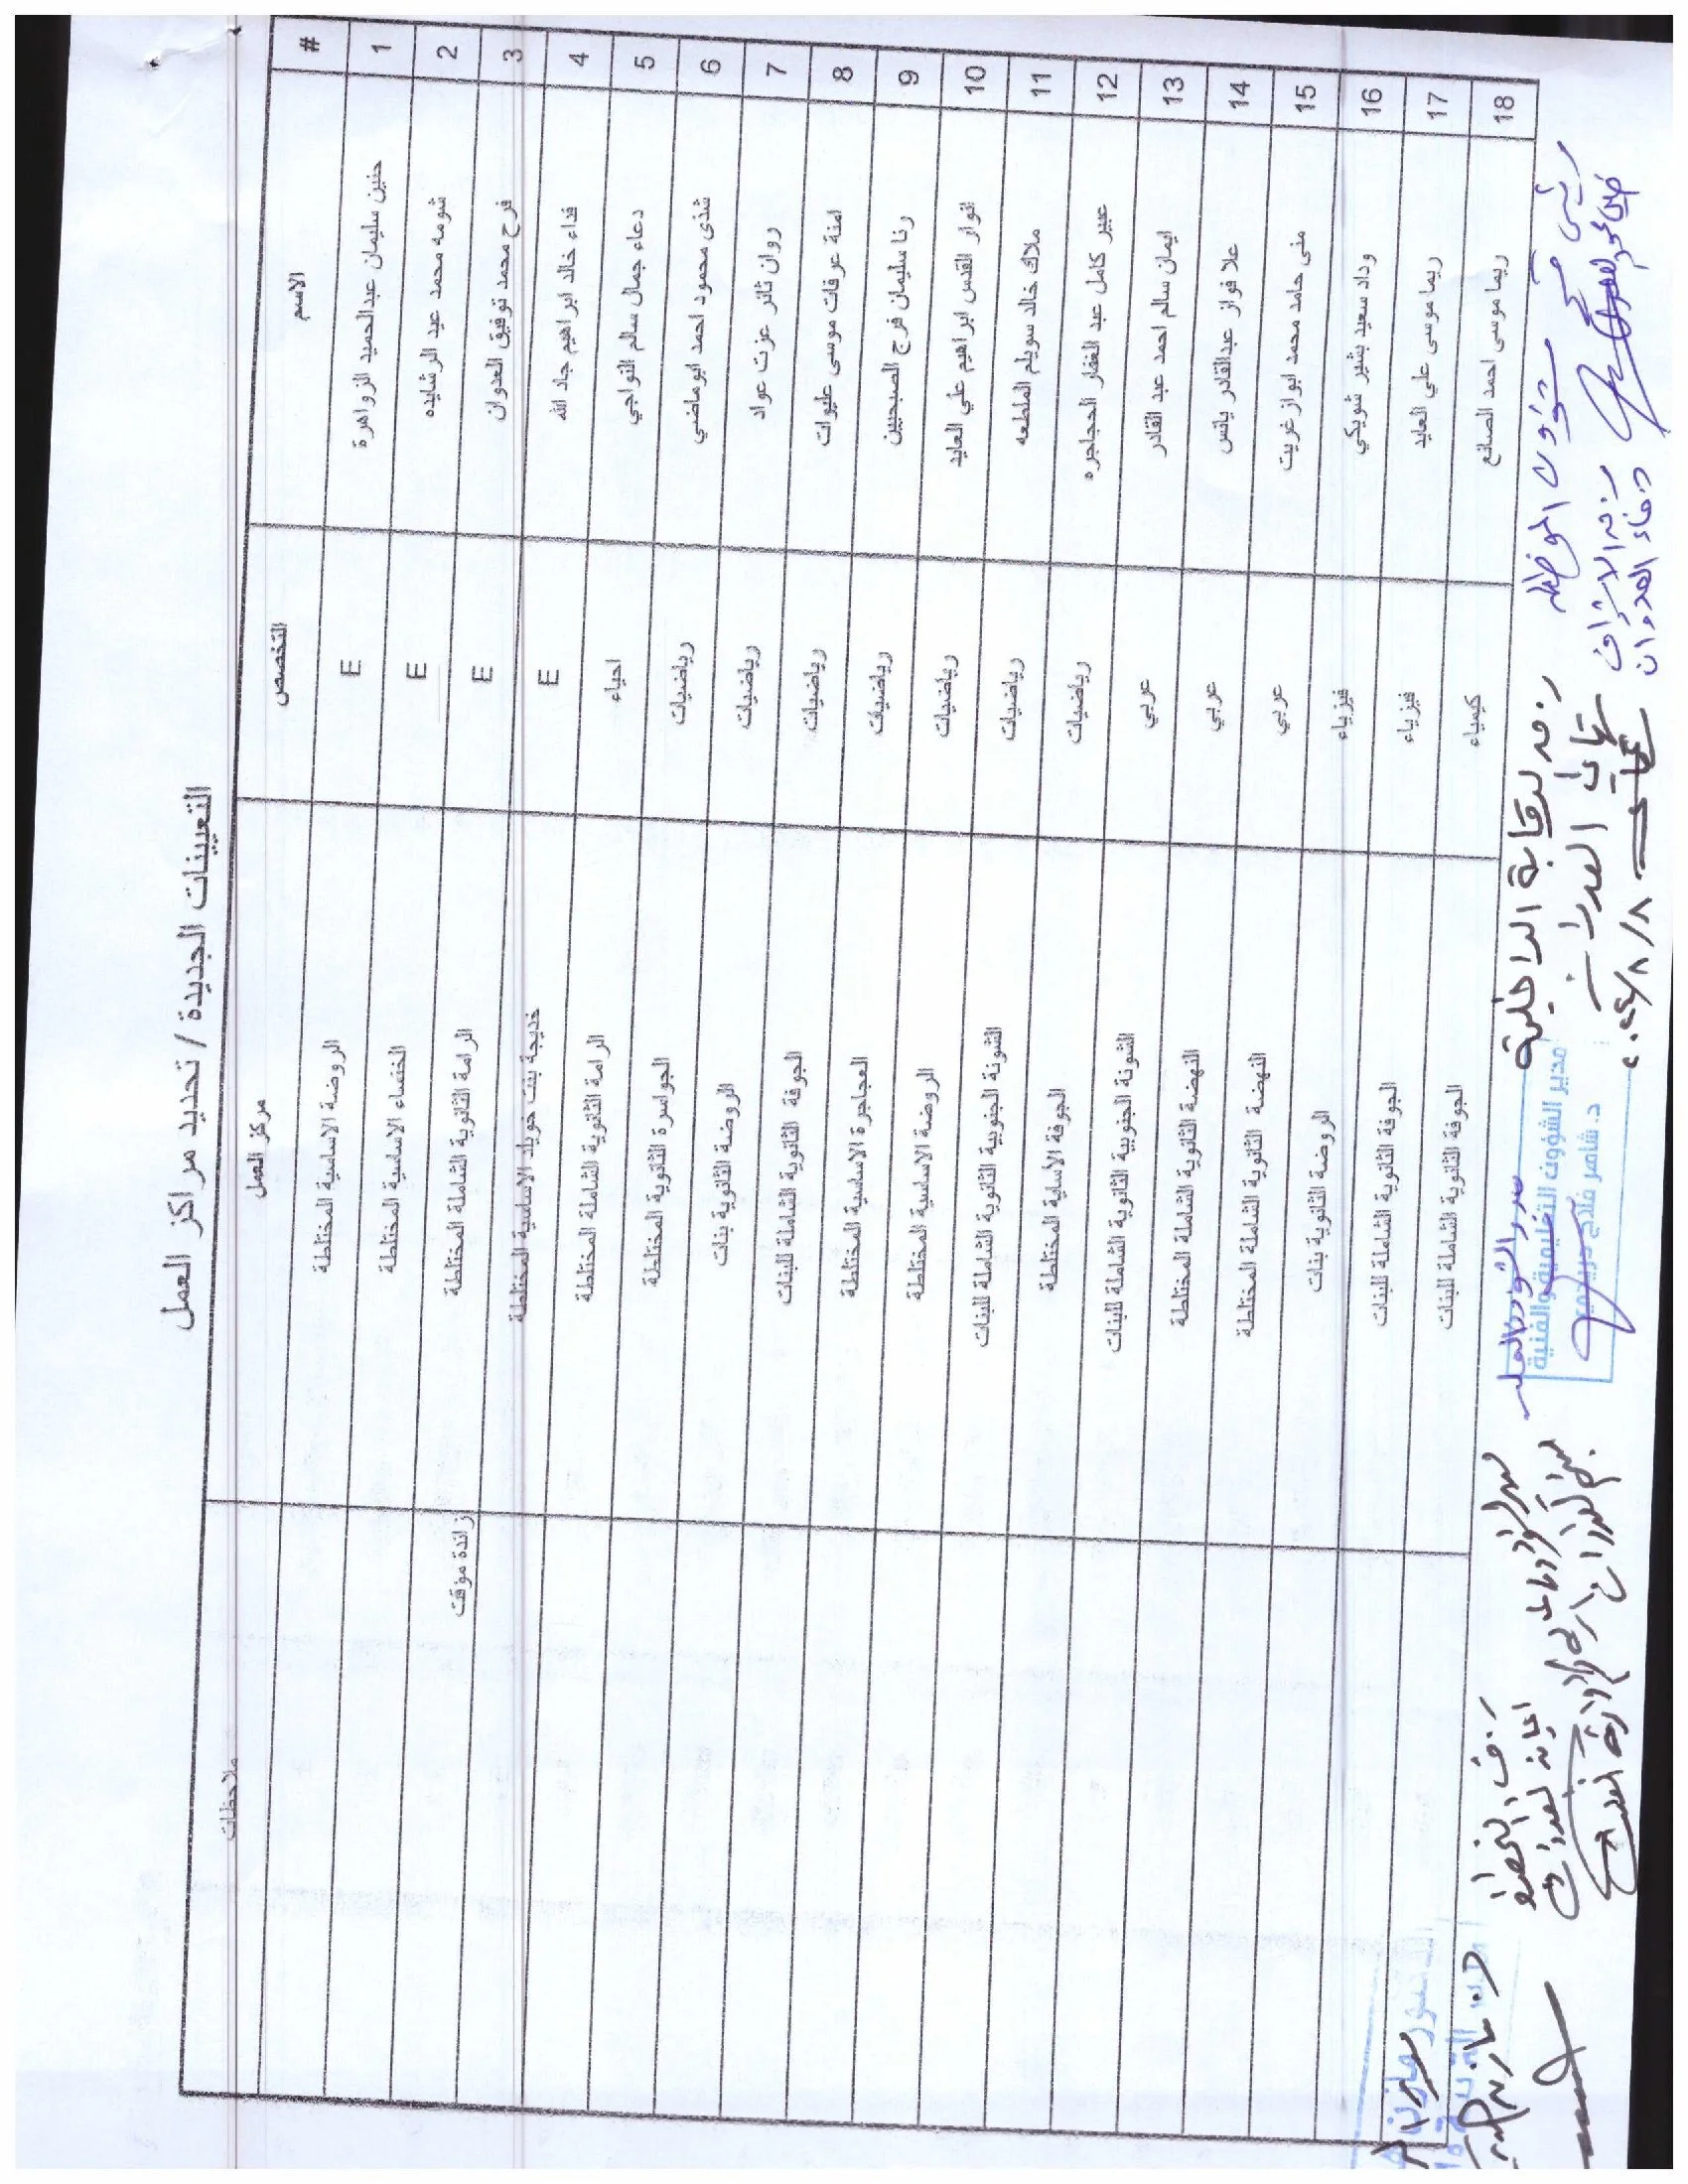 التعيينات الجديدة / تحديد مراكز العمل
# الاسم التخصص مركز العمل ملاحظات
1 حنين سليمان عبدالحميد الزواهرة E الروضة الاساسية المختلطة
2 شومه محمد عيد الرشايده E الخنساء الاساسية المختلطة
3 فرح محمد توفيق العدوان E الرامة الثانوية الشاملة المختلطة زائدة مؤقت
4 فداء خالد ابراهيم جاد الله E خديجة بنت خويلد الاساسية المختلطة
5 دعاء جمال سالم النواجي احياء الرامة الثانوية الشاملة المختلطة
6 شذى محمود احمد ابو ماضي رياضيات الجواسرة الثانوية المختلطة
7 روان ثائر عزت عواد رياضيات الروضة الثانوية بنات
8 امنة عرفات موسى عليوات رياضيات الجوفة الثانوية الشاملة للبنات
9 رنا سليمان فرج الصبحيين رياضيات العجاجرة الاساسية المختلطة
10 انوار القدس ابراهيم علي العايد رياضيات الروضة الاساسية المختلطة
11 ملاك خالد سويلم الملطعه رياضيات الشونة الجنوبية الثانوية الشاملة للبنات
12 عبير كامل عبد الغفار الحجاجره رياضيات الجوفة الاساية المختلطة
13 ايمان سالم احمد عبد القادر عربي الشونة الجنوبية الثانوية الشاملة للبنات
14 علا فواز عبدالقادر يانس عربي النهضة الثانوية الشاملة المختلطة
15 منى حامد محمد ابوازغريت عربي النهضة الثانوية الشاملة المختلطة
16 وداد سعيد بشير شويكي فيزياء الروضة الثانوية بنات
17 ريما موسى علي العايد فيزياء الجوفة الثانوية الشاملة للبنات
18 ريما موسى احمد الصانع كيمياء الجوفة الثانوية الشاملة للبنات
رئيس قسم شؤون الموظفين
ر.قسم الاشراف
دعاء العدوان
ر.قسم الرقابة الداخلية
تهاني العدوان
٢٠٢٤/٨/٨
مدير الشؤون التعليمية والفنية
د. شاهر فلاح دريدي
ر.ق. التخطيط